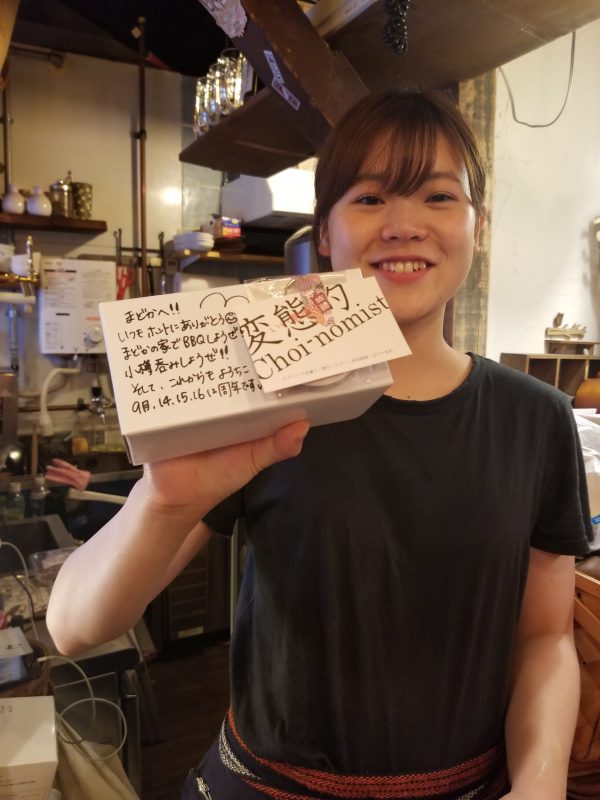 まどかへ!!
いつもホントにありがとう
まどかの家でBBQしようぜ
小樽呑みしようぜ!!
そして、これからもようちこ
9月.14.15.16に周年です
変態的
Choi-nomist